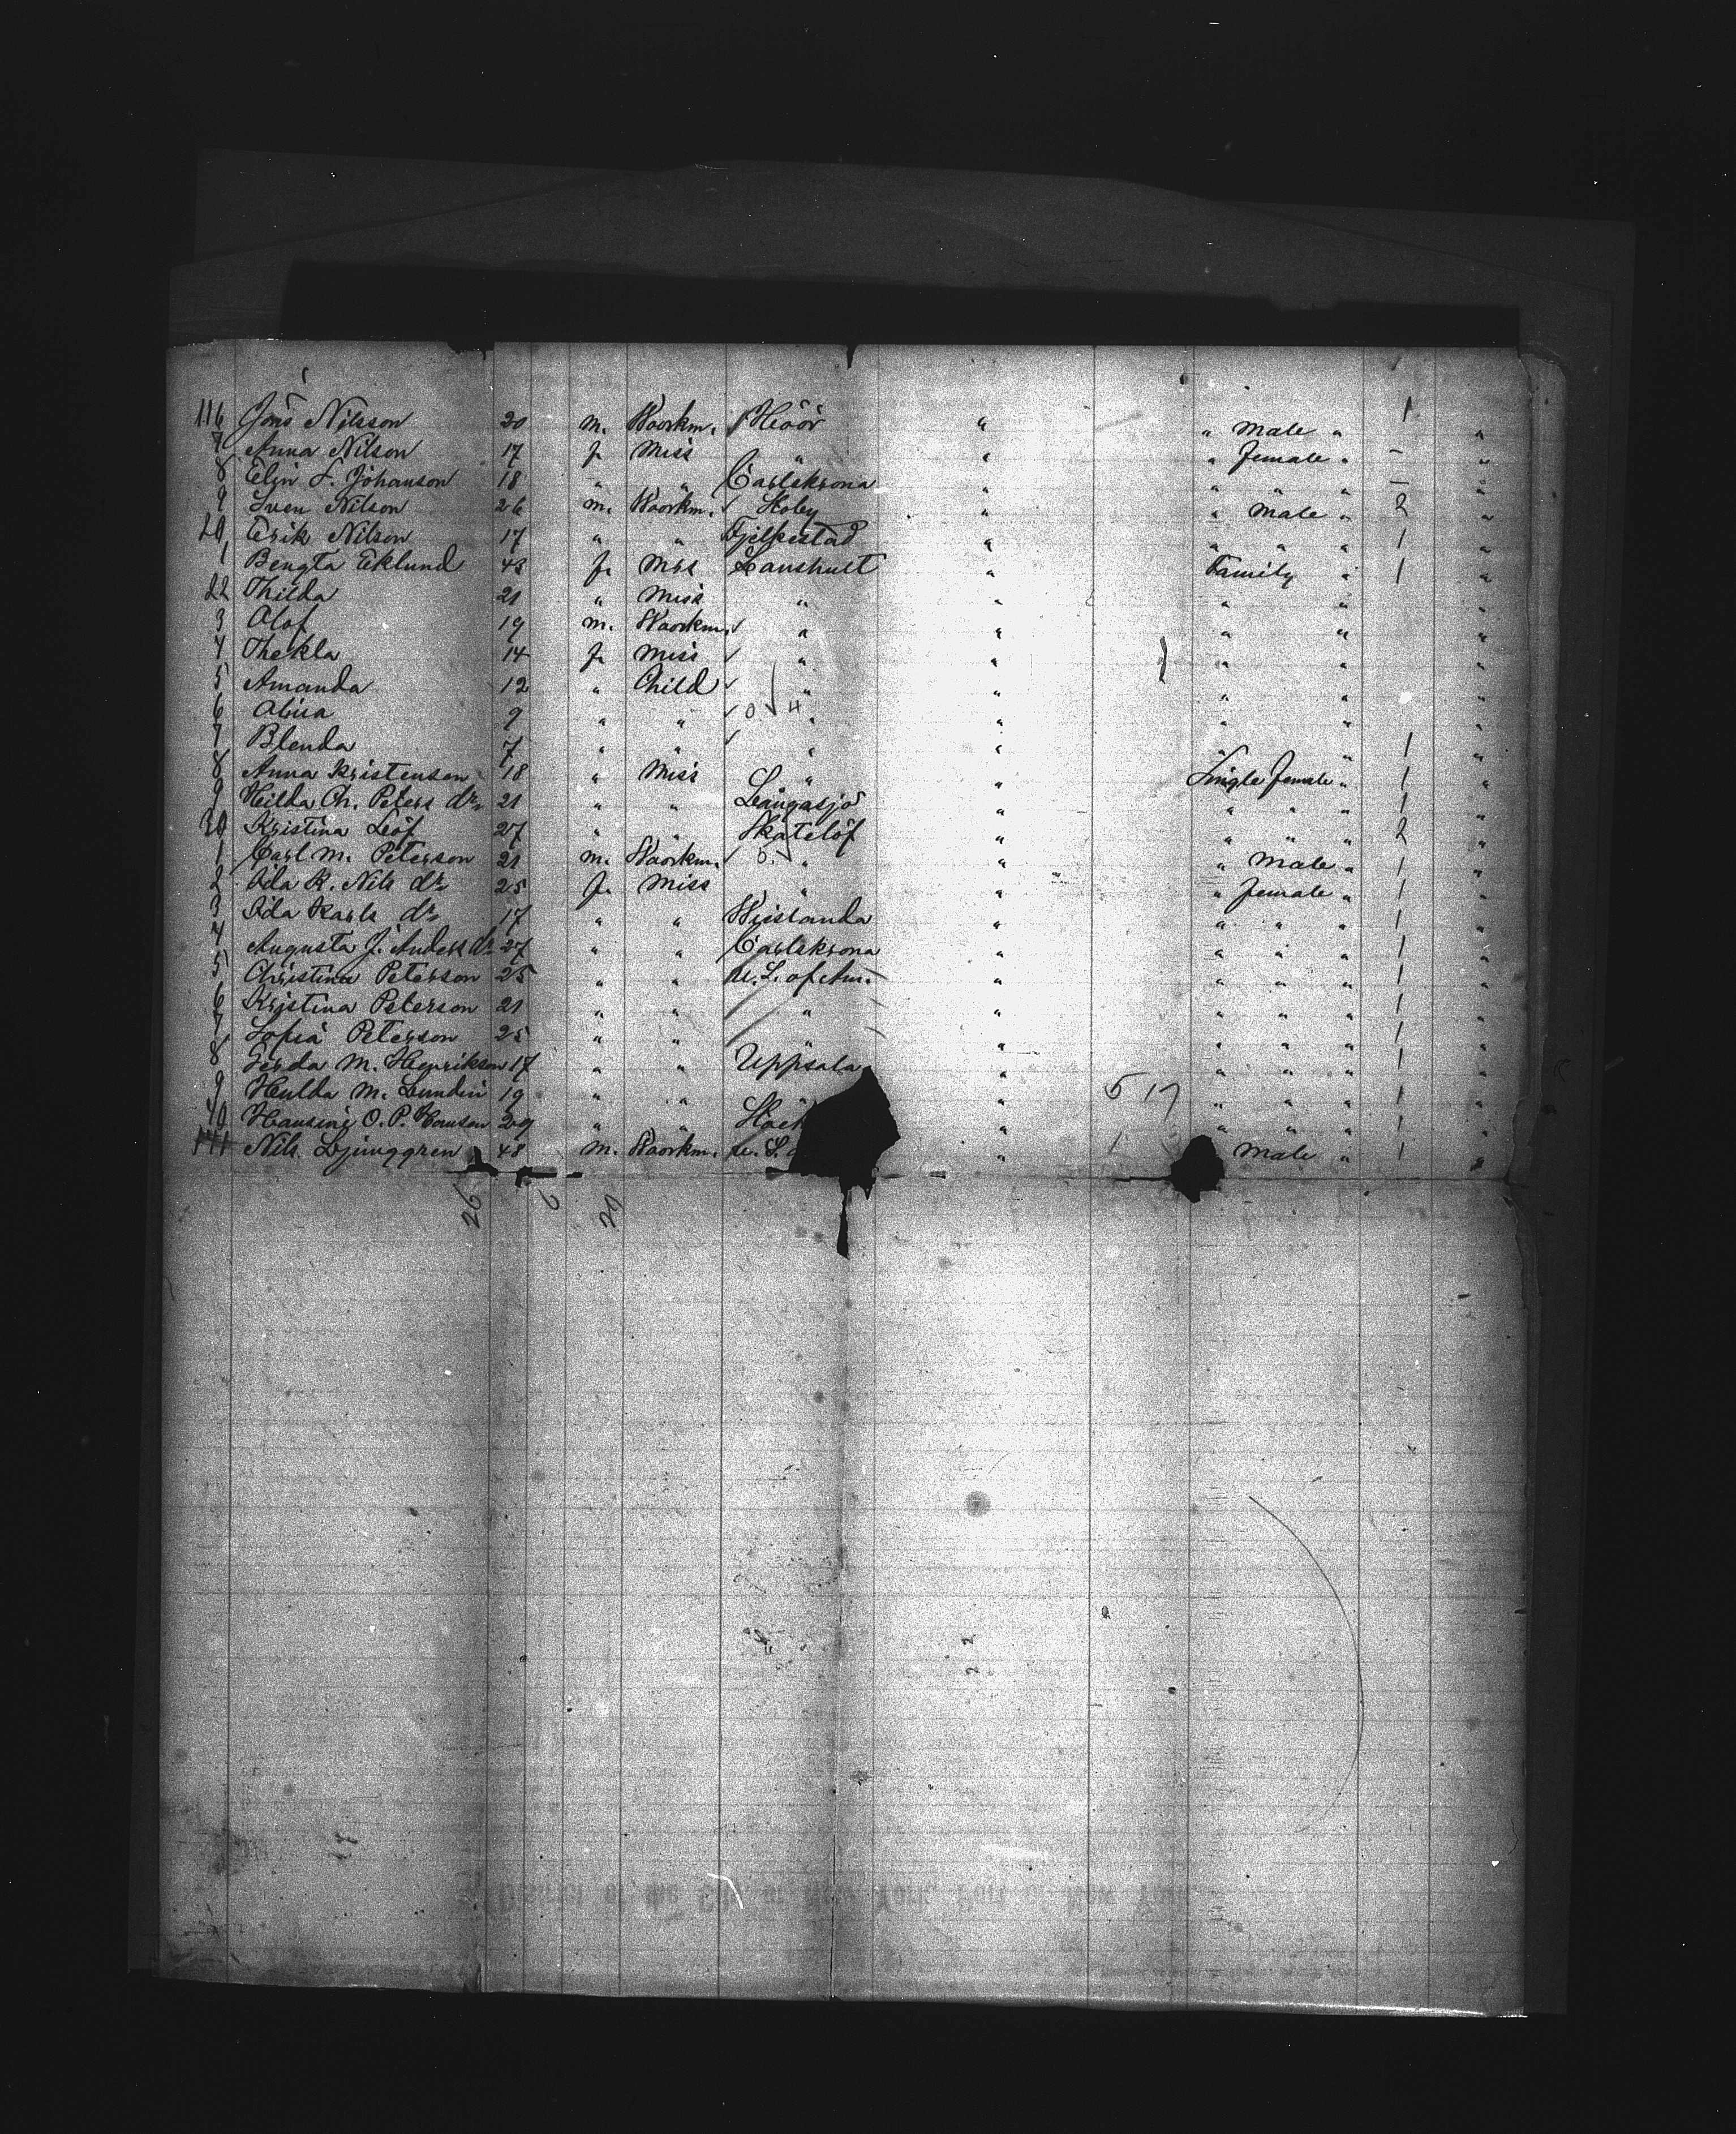 116 Jöns Nilsson 20 m. Woorkm. Höör " " Male " 1 "
7 Anna Nilson 17 f. Miss " " " female " - "
8 Elin S. Johanson 18 " " Carlskrona " " " " - "
9 Sven Nilson 26 m. Woorkm. Hoby " " Male " 2 "
20 Erik Nilson 17 " " Fjelkestad " " " " 1 "
1 Bengta Eklund 43 f. Mrs Laushult " Family " 1 "
22 Thilda 21 " Miss " " " " "
3 Olof 19 m. Woorkm. " " " " "
4 Thekla 14 f. Miss " " " " "
5 Amanda 12 " Child " " " " "
6 9 " " 0 4 " " " " "
7 Blenda 7 " " " " " " 1 "
8 Anna Kristenson 18 " Miss " " Single female " 1 "
9 Hilda Ch. Peters dr 21 " " Långasjö " " " " 1 "
30 Kristina Löf 27 " " Skatelöf " " " " 2 "
1 Carl M. Peterson 21 m. Woorkm. 5. " " " Male " 1 "
2 Ida K. Nils dr 25 f. Miss " " " female " 1 "
3 Ida Karls dr 17 " " Wislanda " " " " 1 "
4 Augusta J. Anders dr 27 " " Carlskrona " " " " 1 "
5 Christina Peterson 25 " " U. S. of Am. " " " " 1 "
6 Kristina Peterson 21 " " " " " " " 1 "
7 Sofia Peterson 25 " " " " " " " 1 "
8 Gerda M. Henrikson 17 " " Uppsala " " " " 1 "
9 Hulda M. Lundin 19 " " " 5 17 " " " 1 "
40 Hansine O. P. Hansen 29 " " " " " " 1 "
141 Nils Ljunggren 48 m. Woorkm. U. S. " 1 Male " 1 "
26 6 20